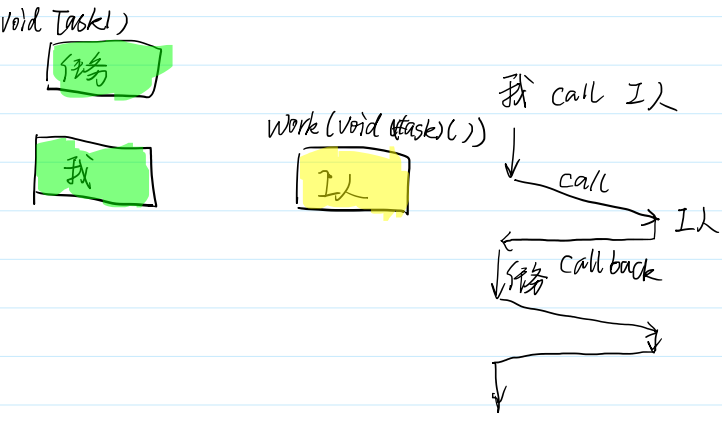 void Task()
任务
我
Work(void (*task)())
工人
我 call 工人
call
工人
callback
任务